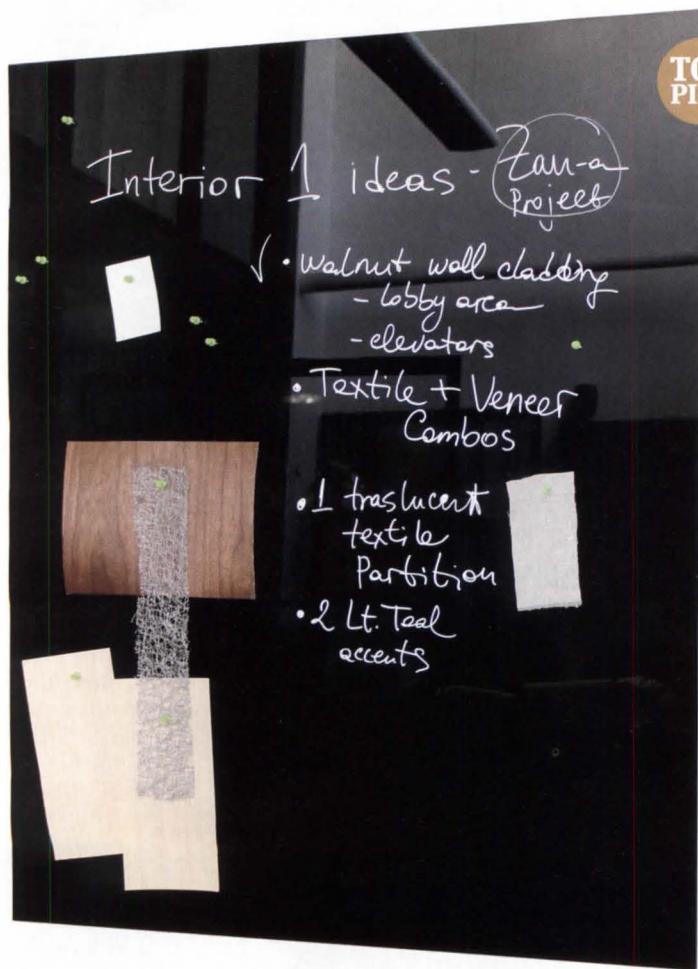 TO
PI
Interior 1 ideas - Zau-a
Project
√ • walnut wall cladding
- lobby area
- elevators
• Textile + Veneer
Combos
• 1 traslucent
textile
Partition
• 2 Lt. Teal
accents